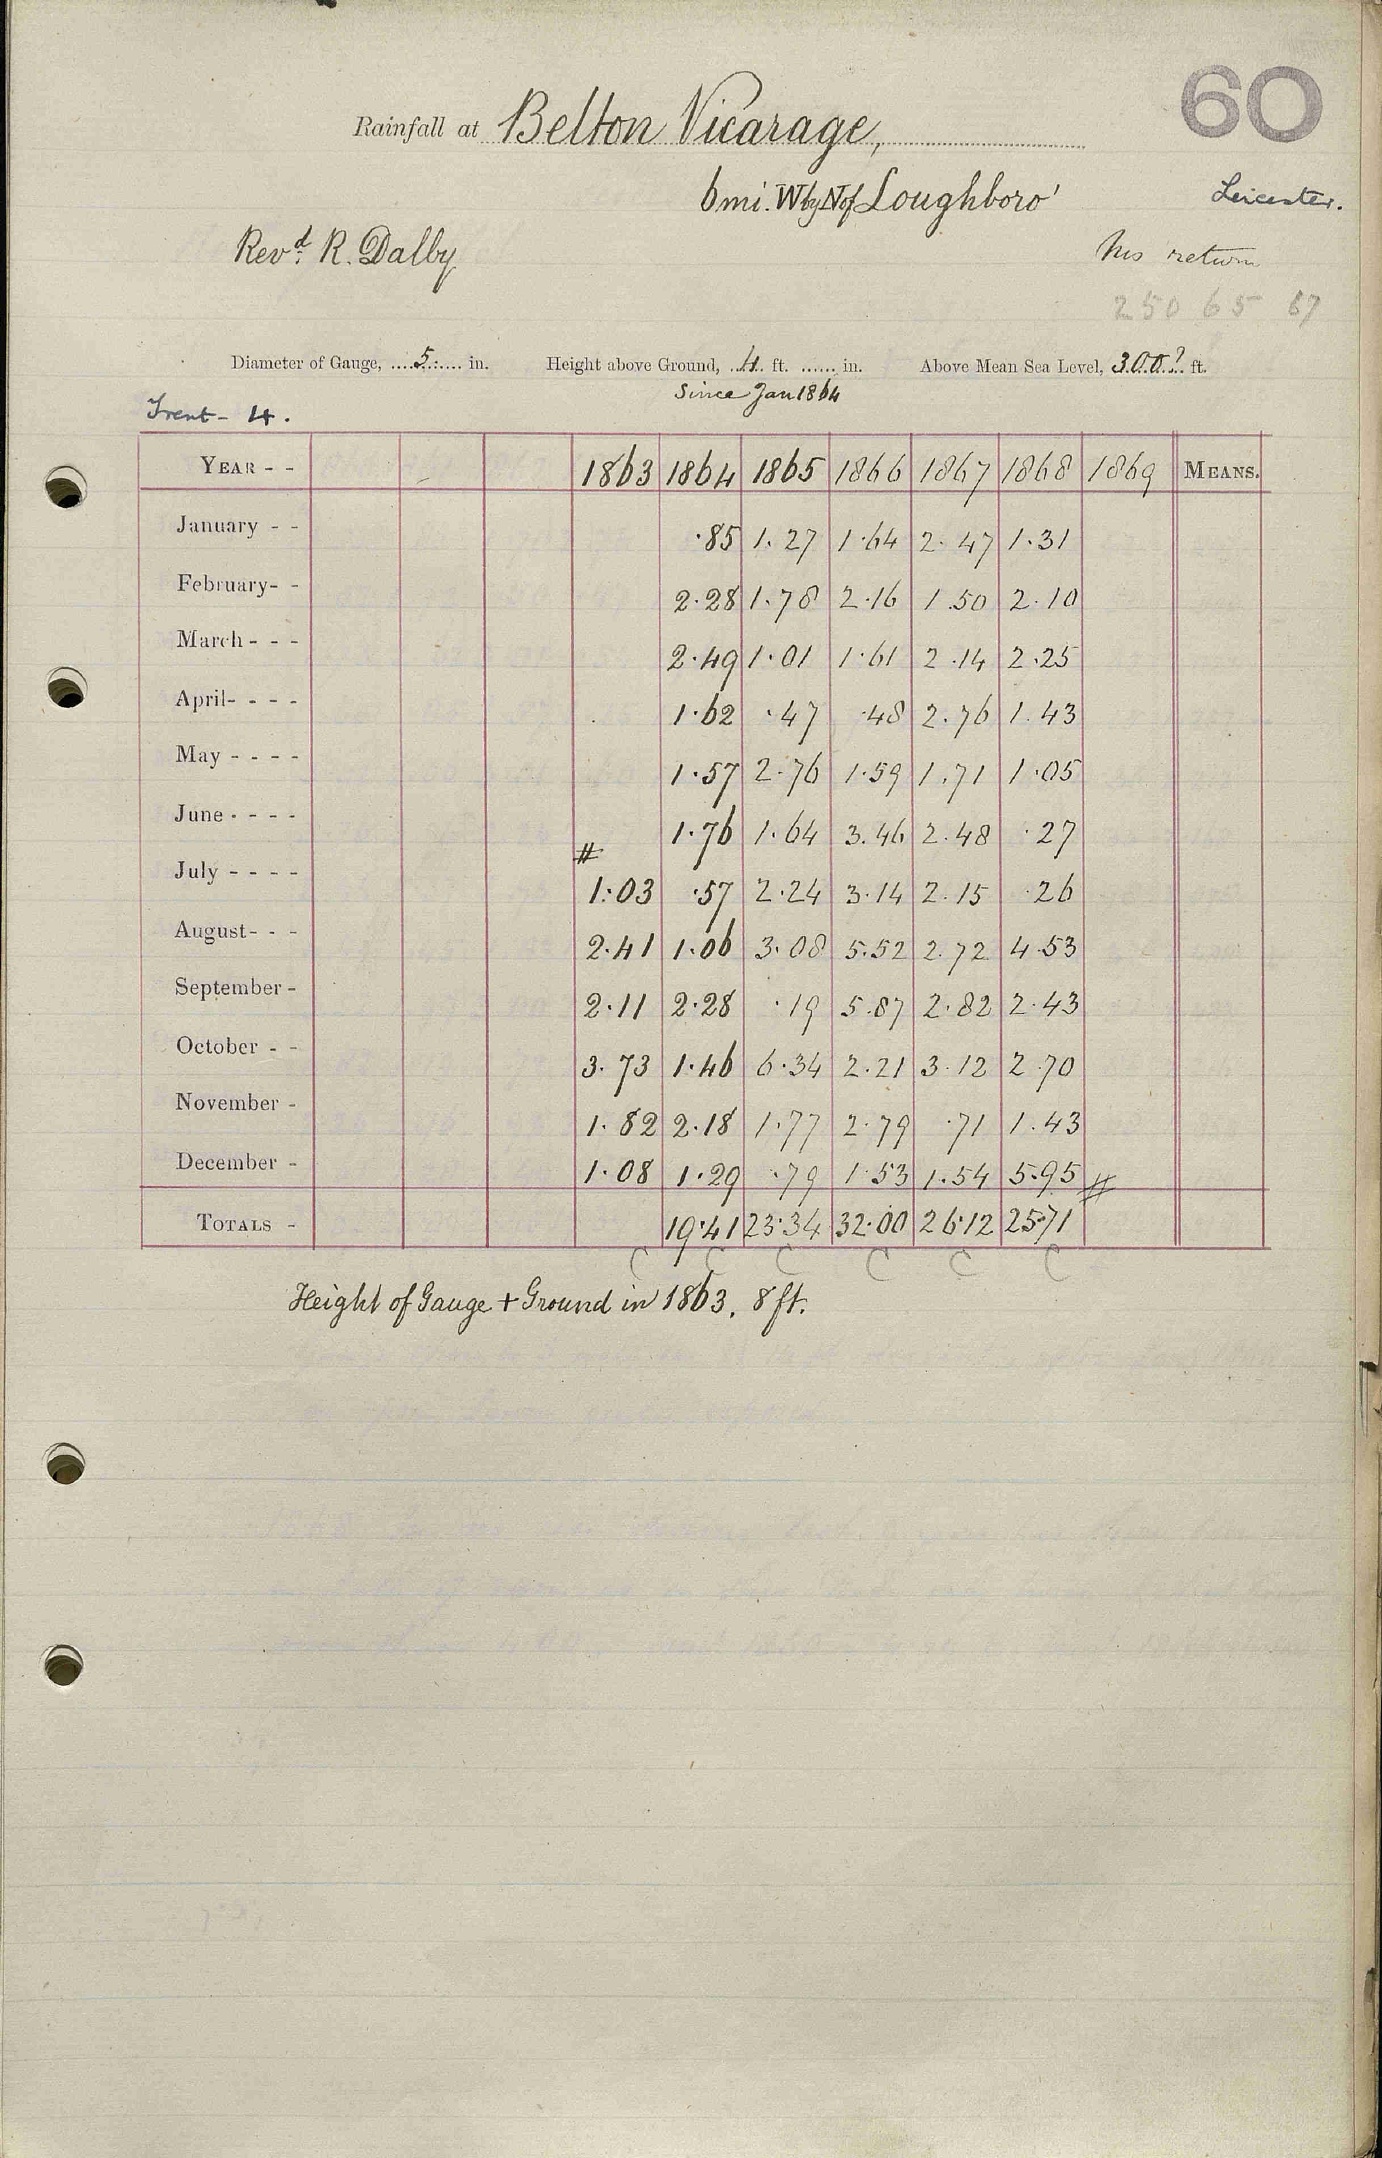 60
Rainfall at Belton Vicarage,
6 mi. W by N of Loughboro'
Leicester.
Revd. R. Dalby
No return
250 65 67
Diameter of Gauge, 5 in. Height above Ground, 4 ft. in. Above Mean Sea Level, 300? ft.
Since Jan 1864
Trent - 4.
YEAR - - 1863 1864 1865 1866 1867 1868 1869 MEANS.
January - - ·85 1·27 1·64 2·47 1·31
February- - 2·28 1·78 2·16 1·50 2·10
March - - - 2·49 1·01 1·61 2·14 2·25
April- - - - 1·62 ·47 ·48 2·76 1·43
May - - - - 1·57 2·76 1·59 1·71 1·05
June - - - - 1·76 1·64 3·46 2·48 ·27
July - - - - 1·03 ·57 2·24 3·14 2·15 ·26
August- - - 2·41 1·06 3·08 5·52 2·72 4·53
September - 2·11 2·28 ·19 5·87 2·82 2·43
October - - 3·73 1·46 6·34 2·21 3·12 2·70
November - 1·82 2·18 1·77 2·79 ·71 1·43
December - 1·08 1·29 ·79 1·53 1·54 5·95
TOTALS - 19·41 23·34 32·00 26·12 25·71
C C C C C C
Height of Gauge + Ground in 1863, 8 ft.